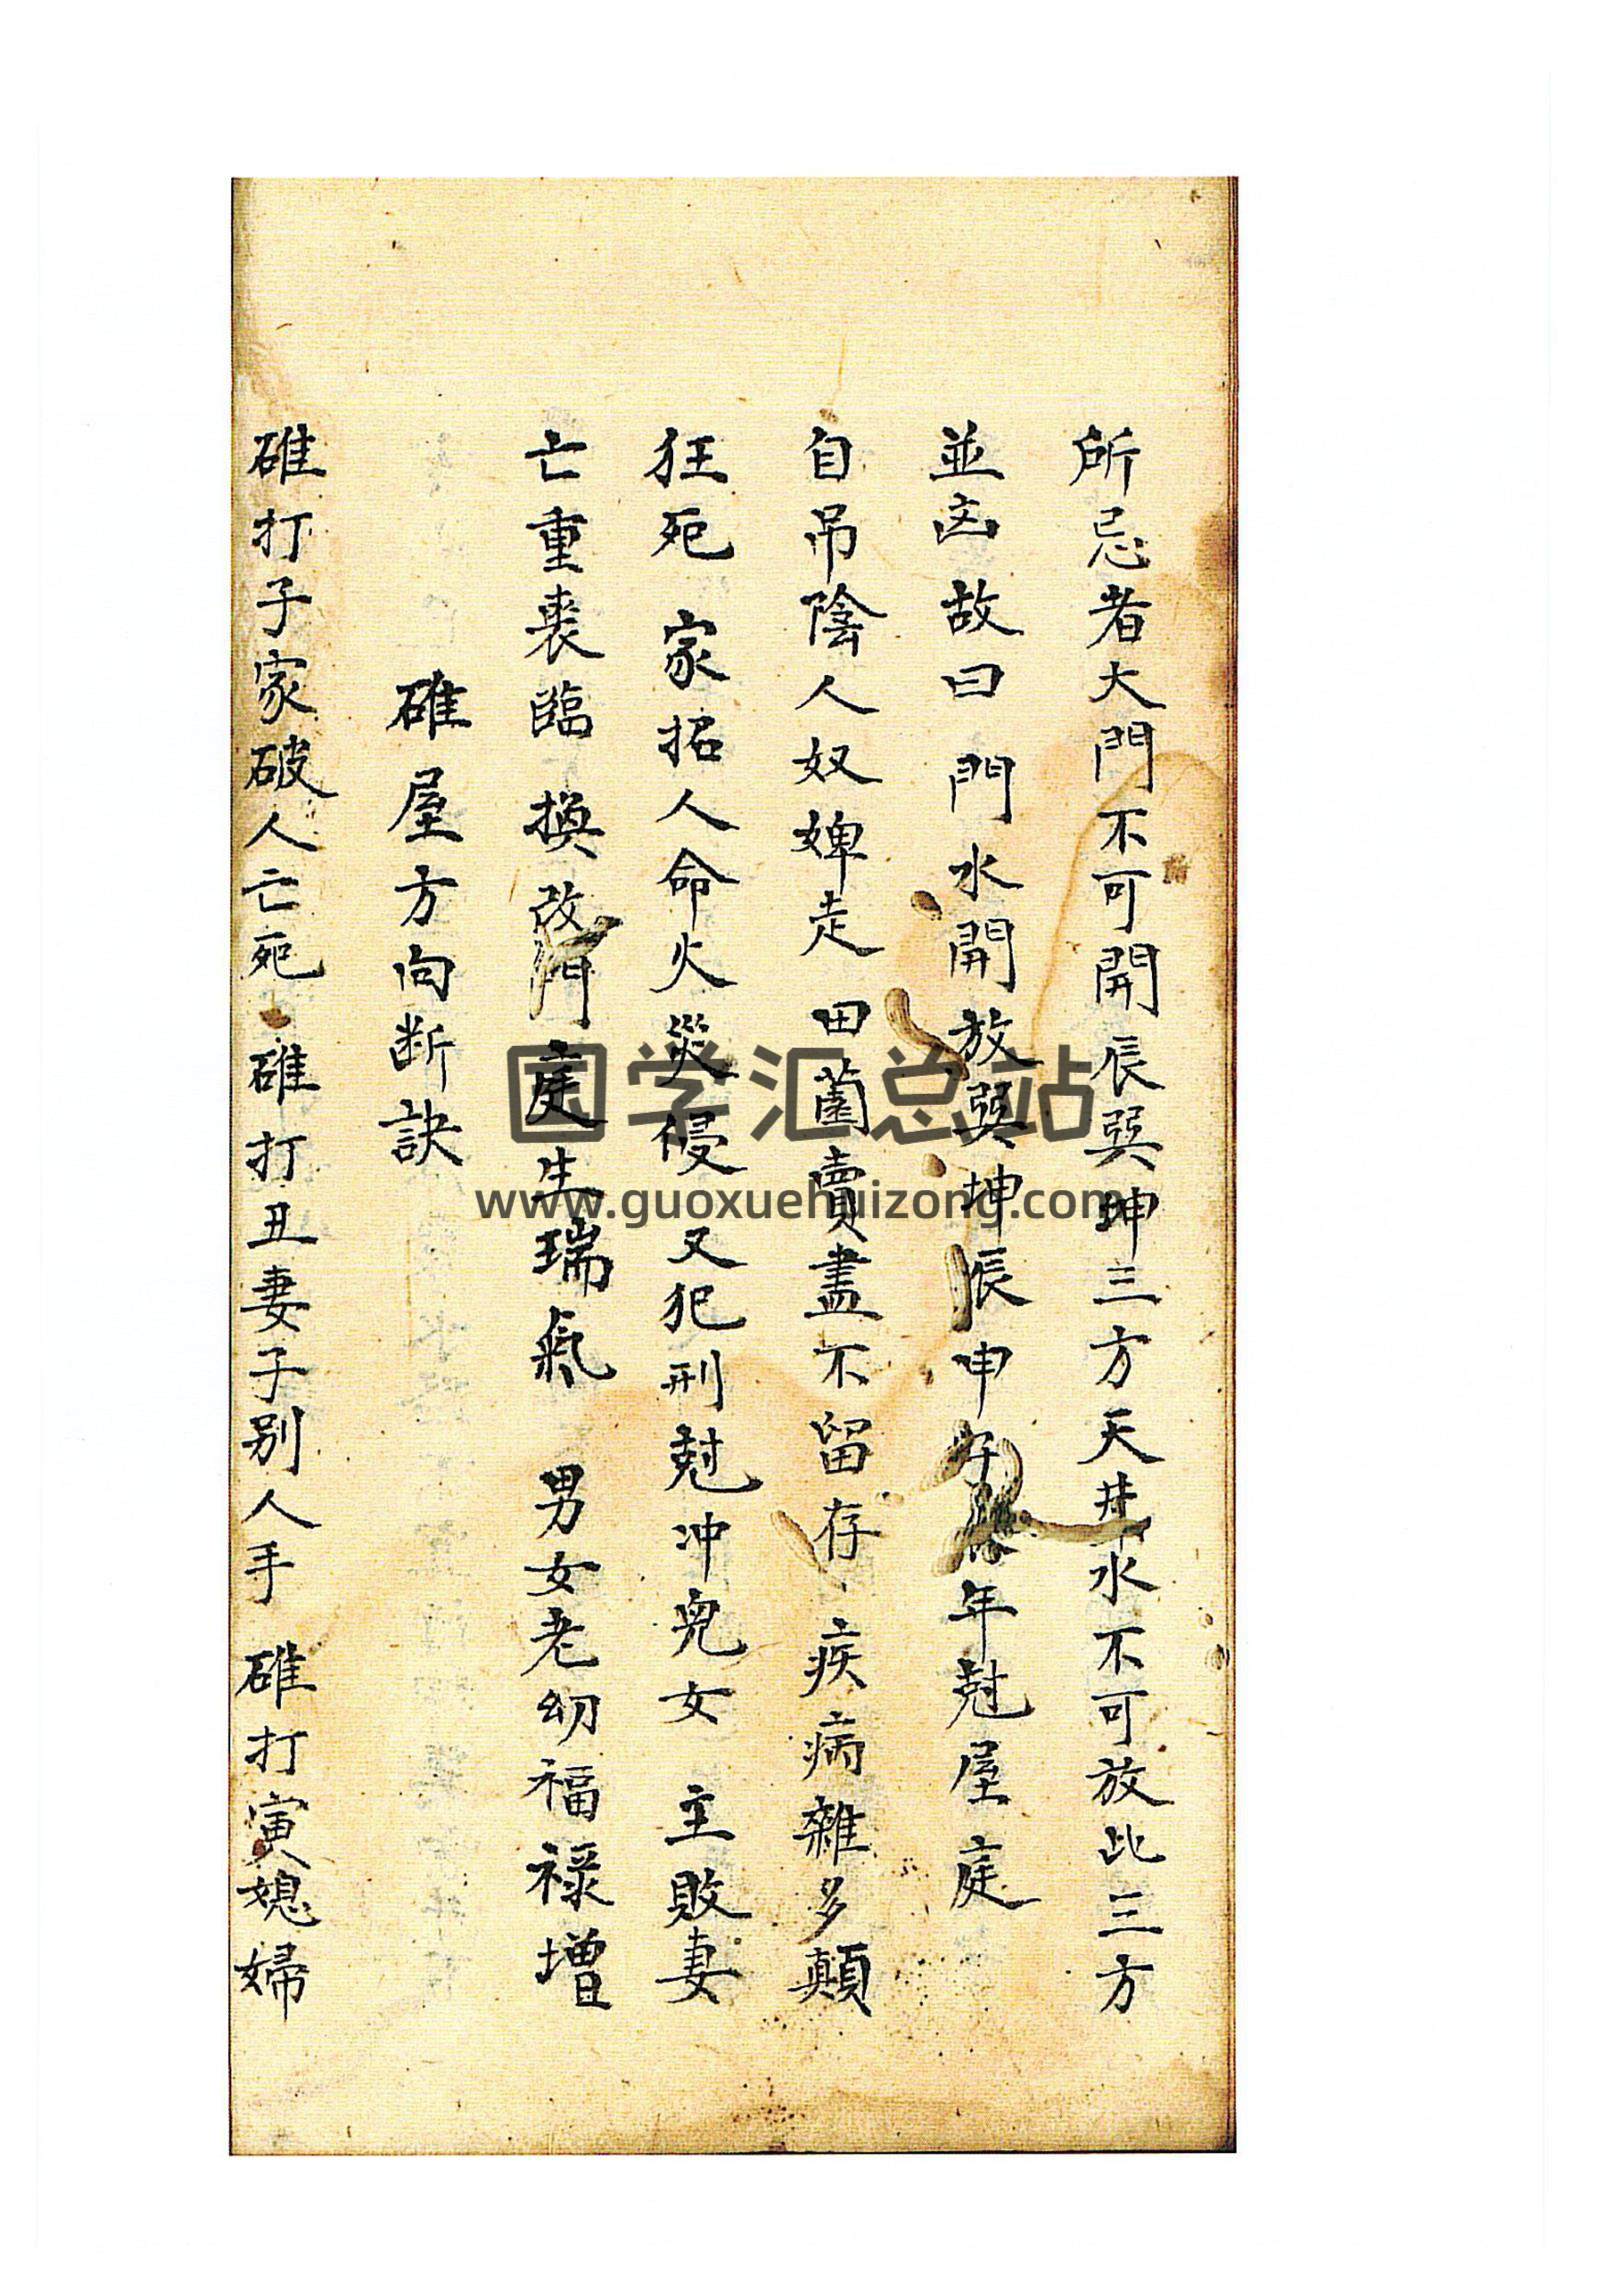 所忌者大門不可開辰巽坤三方天井水不可放此三方
並凶故曰 門水開放巽坤辰申子年尅屋庭
自吊陰人奴婢走 田薗賣盡不留存 疾病雜多顛
狂死 家招人命火災侵 又犯刑尅冲兒女 主敗妻
亡重喪臨 換改門庭生瑞氣 男女老幼福禄增
碓屋方向断訣
碓打子家破人亡死 碓打丑妻子别人手 碓打寅媳婦
国学汇总站
www.guoxuehuizong.com